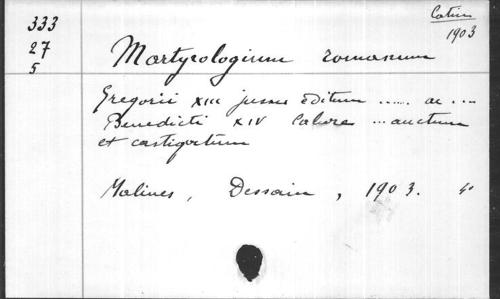 333
27
5
Latin
1903
Martyrologium romanum
Gregorii XIII jussu editum ..... ac ....
Benedicti XIV labore ... auctum
et castigatum
Malines, Dessain, 1903. 4°